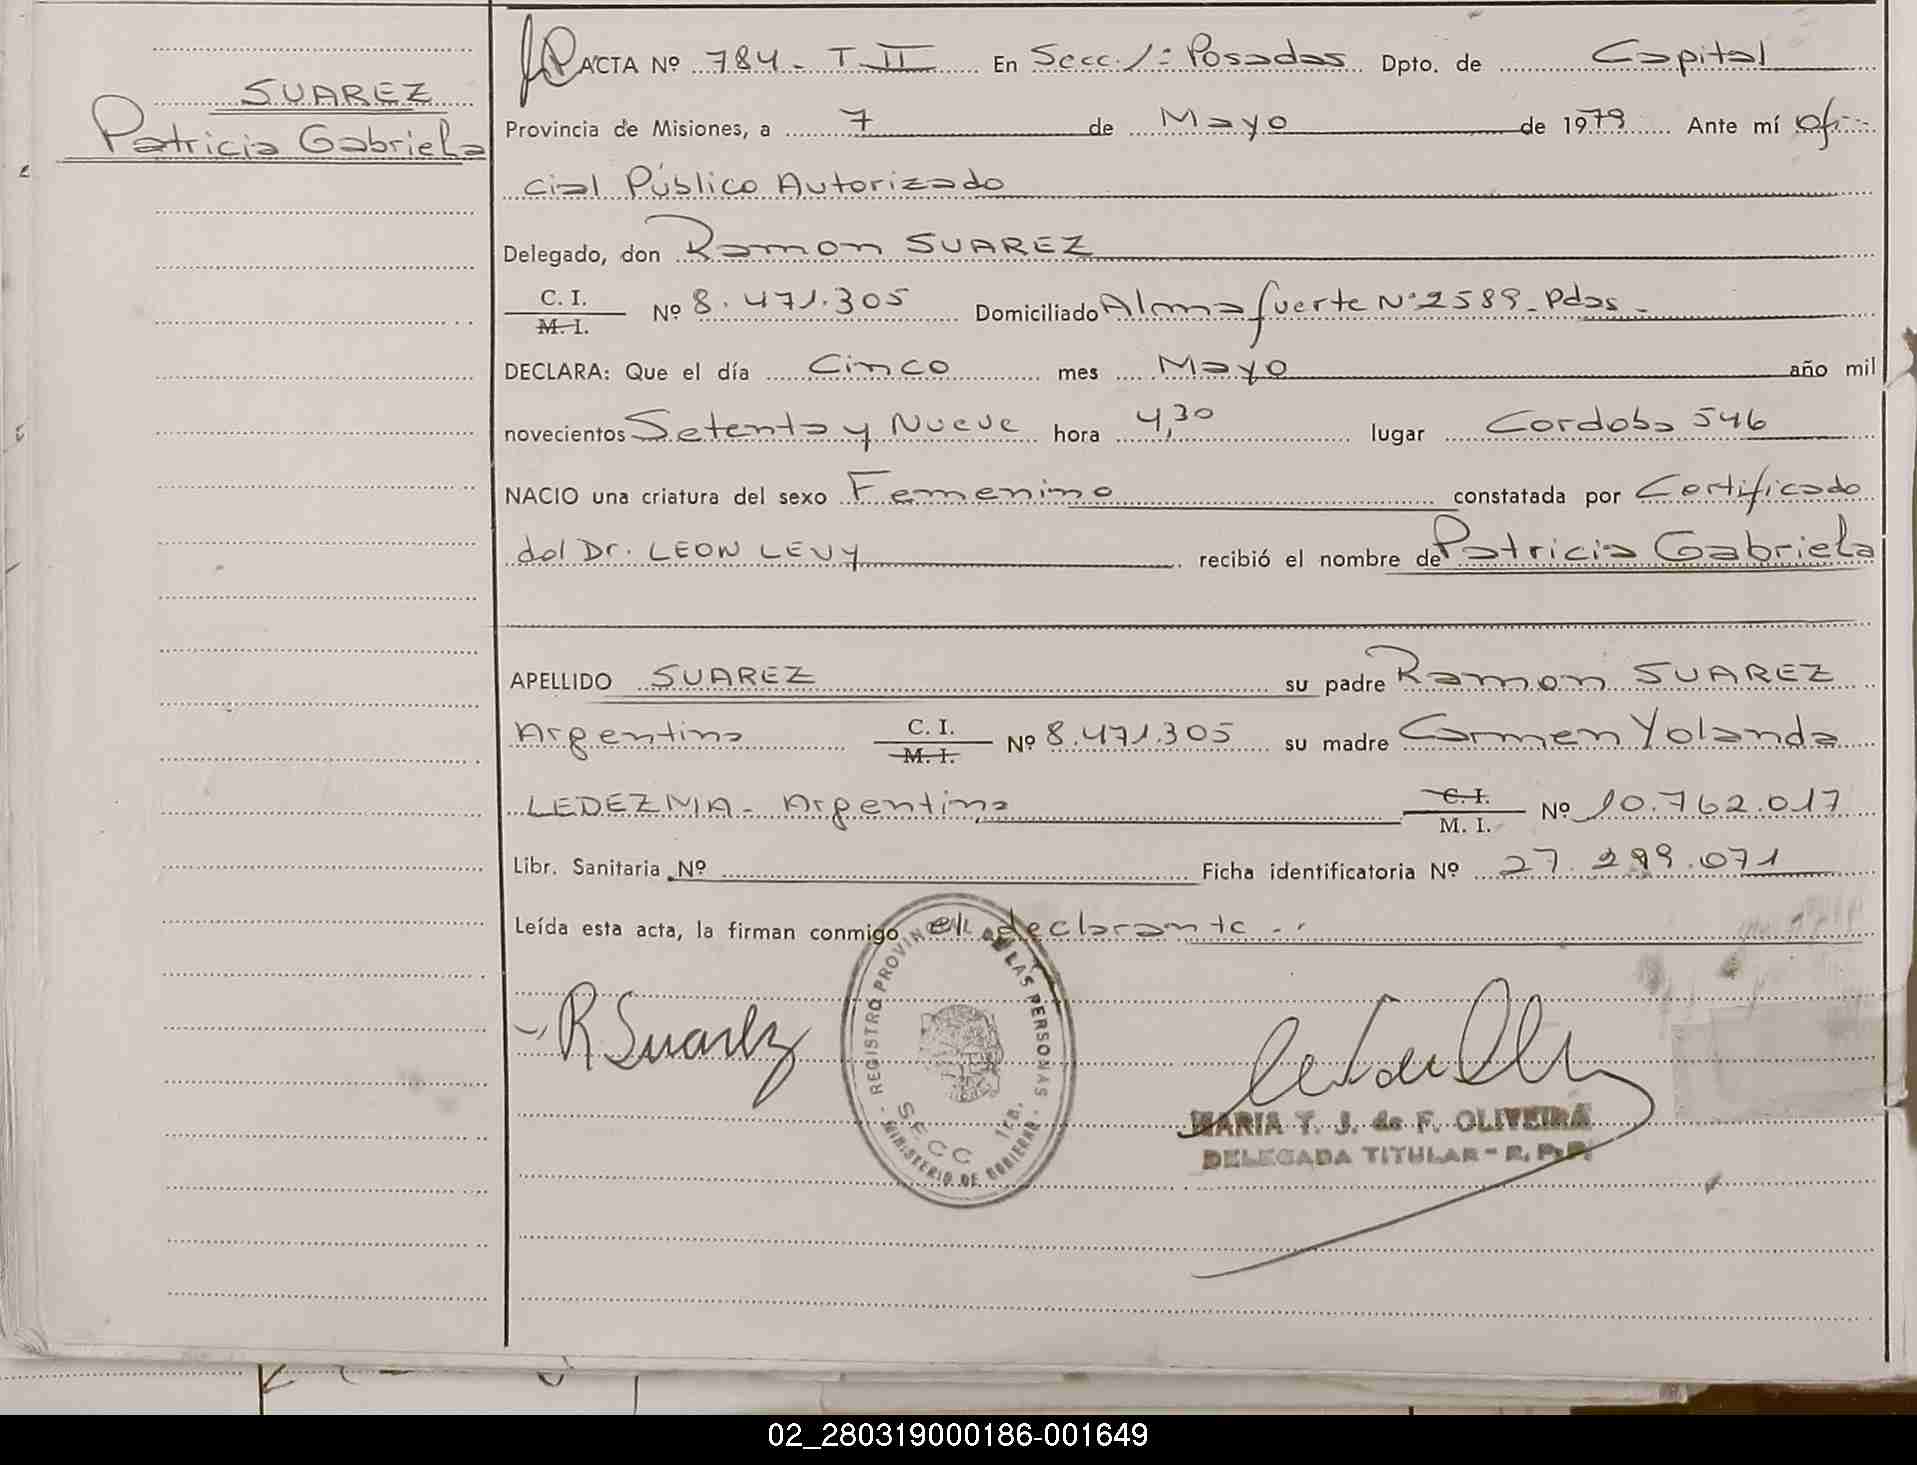 SUAREZ
Patricia Gabriela
ACTA Nº 784 - T II En Secc. 1ª Posadas Dpto. de Capital
Provincia de Misiones, a 7 de Mayo de 1979 Ante mí Ofi-
cial Público Autorizado
Delegado, don Ramon SUAREZ
C. I.
M. I. Nº 8.471.305 Domiciliado Almafuerte Nº 2589 - Pdas -
DECLARA: Que el día Cinco mes Mayo año mil
novecientos Setenta y Nueve hora 4,30 lugar Cordoba 546
NACIO una criatura del sexo Femenino constatada por Certificado
del Dr. LEON LEVY recibió el nombre de Patricia Gabriela
APELLIDO SUAREZ su padre Ramon SUAREZ
Argentino C. I. M. I. Nº 8.471.305 su madre Carmen Yolanda
LEDEZMA - Argentina C. I. M. I. Nº 10.762.017
Libr. Sanitaria Nº Ficha identificatoria Nº 27.299.071
Leída esta acta, la firman conmigo el declarante -
R Suarez
REGISTRO PROVINCIAL DE LAS PERSONAS
SECC 1ra.
MINISTERIO DE GOBIERNO
MARIA T. J. de F. OLIVEIRA
DELEGADA TITULAR - R. P. P.
02_280319000186-001649